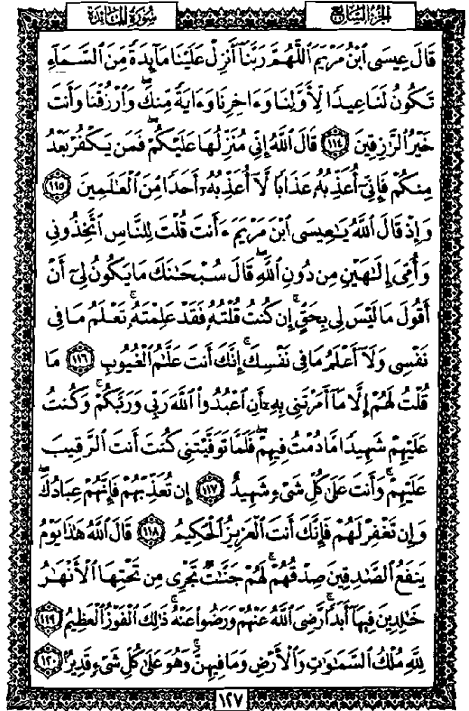 سُورَةُ المَائِدَةِ
الجُزْءُ السَّابِعُ
قَالَ عِيسَى ٱبْنُ مَرْيَمَ ٱللَّهُمَّ رَبَّنَآ أَنزِلْ عَلَيْنَا مَآئِدَةً مِّنَ ٱلسَّمَآءِ
تَكُونُ لَنَا عِيدًا لِّأَوَّلِنَا وَءَاخِرِنَا وَءَايَةً مِّنكَ ۖ وَٱرْزُقْنَا وَأَنتَ
خَيْرُ ٱلرَّٰزِقِينَ ١١٤ قَالَ ٱللَّهُ إِنِّى مُنَزِّلُهَا عَلَيْكُمْ ۖ فَمَن يَكْفُرْ بَعْدُ
مِنكُمْ فَإِنِّىٓ أُعَذِّبُهُۥ عَذَابًا لَّآ أُعَذِّبُهُۥٓ أَحَدًا مِّنَ ٱلْعَٰلَمِينَ ١١٥
وَإِذْ قَالَ ٱللَّهُ يَٰعِيسَى ٱبْنَ مَرْيَمَ ءَأَنتَ قُلْتَ لِلنَّاسِ ٱتَّخِذُونِى
وَأُمِّىَ إِلَٰهَيْنِ مِن دُونِ ٱللَّهِ ۖ قَالَ سُبْحَٰنَكَ مَا يَكُونُ لِىٓ أَنْ
أَقُولَ مَا لَيْسَ لِى بِحَقٍّ ۚ إِن كُنتُ قُلْتُهُۥ فَقَدْ عَلِمْتَهُۥ ۚ تَعْلَمُ مَا فِى
نَفْسِى وَلَآ أَعْلَمُ مَا فِى نَفْسِكَ ۚ إِنَّكَ أَنتَ عَلَّٰمُ ٱلْغُيُوبِ ١١٦ مَا
قُلْتُ لَهُمْ إِلَّا مَآ أَمَرْتَنِى بِهِۦٓ أَنِ ٱعْبُدُوا۟ ٱللَّهَ رَبِّى وَرَبَّكُمْ ۚ وَكُنتُ
عَلَيْهِمْ شَهِيدًا مَّا دُمْتُ فِيهِمْ ۖ فَلَمَّا تَوَفَّيْتَنِى كُنتَ أَنتَ ٱلرَّقِيبَ
عَلَيْهِمْ ۚ وَأَنتَ عَلَىٰ كُلِّ شَىْءٍ شَهِيدٌ ١١٧ إِن تُعَذِّبْهُمْ فَإِنَّهُمْ عِبَادُكَ ۖ
وَإِن تَغْفِرْ لَهُمْ فَإِنَّكَ أَنتَ ٱلْعَزِيزُ ٱلْحَكِيمُ ١١٨ قَالَ ٱللَّهُ هَٰذَا يَوْمُ
يَنفَعُ ٱلصَّٰدِقِينَ صِدْقُهُمْ ۚ لَهُمْ جَنَّٰتٌ تَجْرِى مِن تَحْتِهَا ٱلْأَنْهَٰرُ
خَٰلِدِينَ فِيهَآ أَبَدًا ۚ رَّضِىَ ٱللَّهُ عَنْهُمْ وَرَضُوا۟ عَنْهُ ۚ ذَٰلِكَ ٱلْفَوْزُ ٱلْعَظِيمُ ١١٩
لِلَّهِ مُلْكُ ٱلسَّمَٰوَٰتِ وَٱلْأَرْضِ وَمَا فِيهِنَّ ۚ وَهُوَ عَلَىٰ كُلِّ شَىْءٍ قَدِيرٌۢ ١٢٠
١٢٧